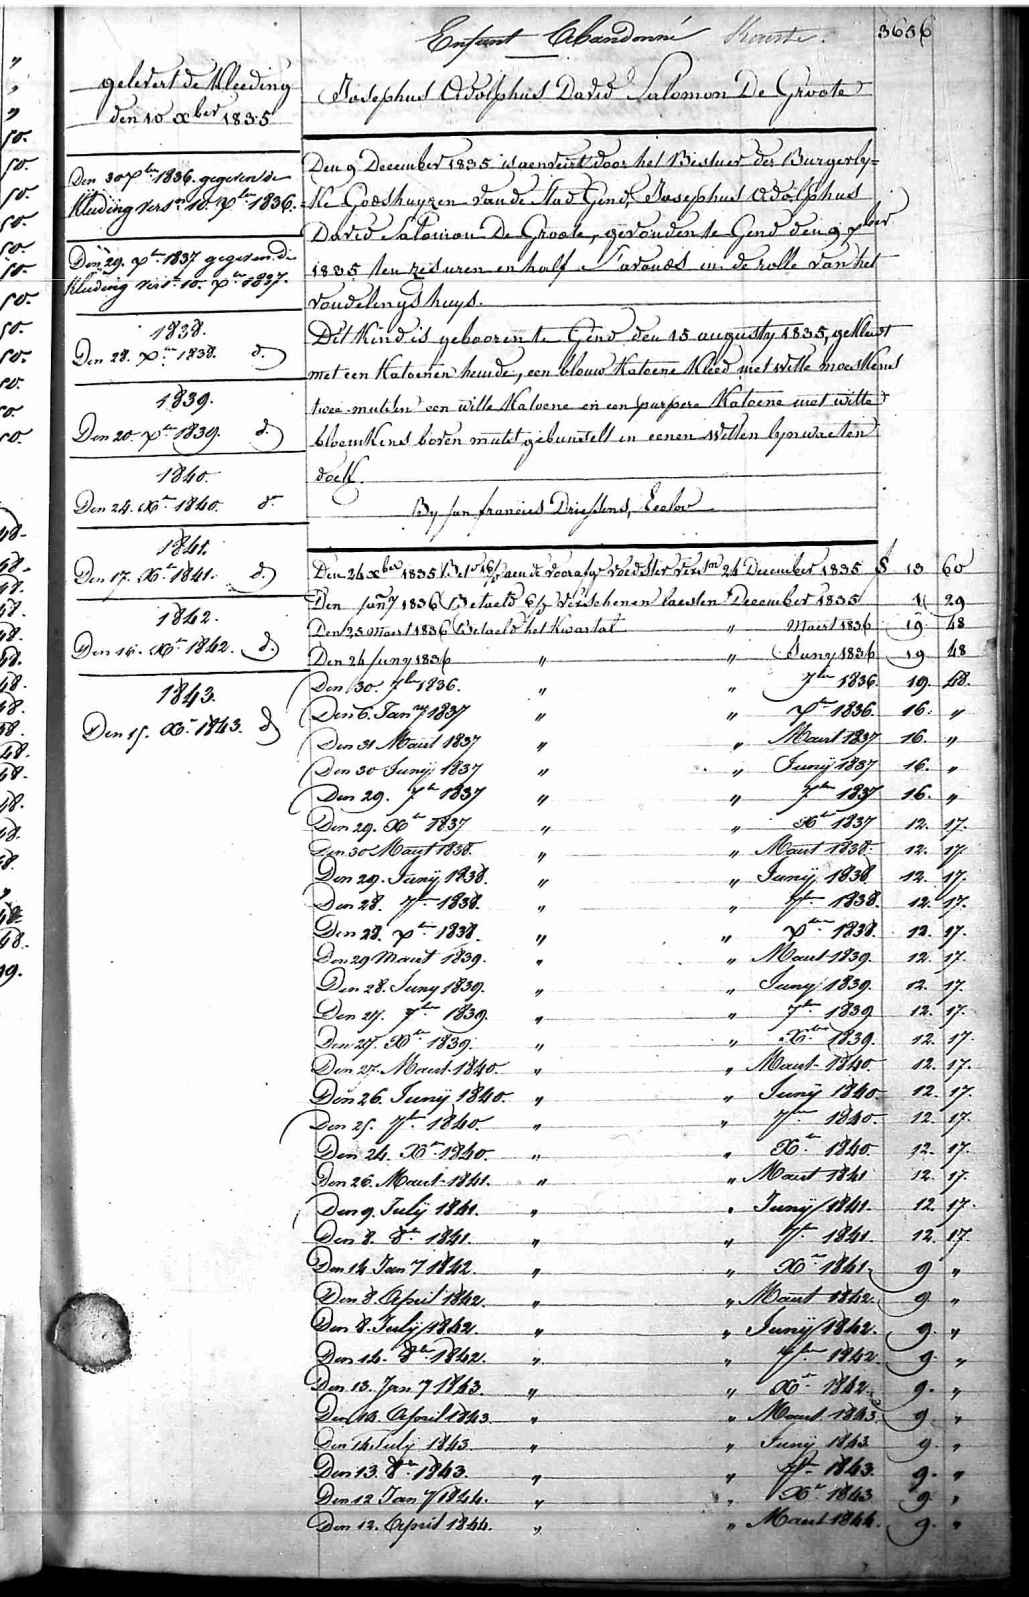 Enfant Abandonné
3636
Josephus Adolphus David Salomon De Groote
gelevert de Kleeding
den 10 xber 1835
Den 30 xber 1836 gegeven de
Kleeding verst 10. xber 1836.
Den 29. xber 1837 gegeven de
Kleeding verst 10. xber 1837.
1838.
Den 28. xber 1838. do
1839.
Den 20. xber 1839. do
1840.
Den 24. Xber 1840. do
1841.
Den 17. Xber 1841. do
1842.
Den 16. Xber 1842. do
1843.
Den 15. Xber 1843. do
Den 9 December 1835 is aenveert door het Bestuer der Burgerly=
ke Godshuyzen van de Stad Gend, Josephus Adolphus
David Salomon De Groote, gevonden te Gend den 9 xber
1835 ten zes uren en half s'avonds in de rolle van het
vondelingshuys.
Dit Kind is gebooren te Gend den 15 augusty 1835, gekleed
met een Katoenen hemde, een blouw Katoene Kleed met witte moeskens
twee mutsen een witte Katoene en een purpere Katoene met witte
bloemkens boven muts gebunselt in eenen witten lynwaeten
doek.
By Jan francies Driessens, Eecloo
Den 24 xber 1835 aen de voorafge voedster verstn 24 December 1835 f 13 60
Den Jany 1836 Betaeld verschenen laesten December 1835 1 29
Den 25 maert 1836 Betaeld het Kwartal " Maert 1836 19 48
Den 24 Juny 1836 " " Juny 1836 19 48
Den 30. 7ber 1836. " " 7ber 1836. 19. 48.
Den 6. Jany 1837 " " xber 1836. 16. "
Den 31 Maert 1837 " " Maert 1837 16. "
Den 30 Junij 1837 " " Junij 1837 16. "
Den 29. 7ber 1837 " " 7ber 1837 16. "
Den 29. Xber 1837 " " Xber 1837 12. 17.
Den 30 Maert 1838. " " Maert 1838. 12. 17.
Den 29. Junij 1838. " " Junij 1838 12. 17.
Den 28. 7ber 1838. " " 7ber 1838. 12. 17.
Den 28. xber 1838. " " xber 1838. 12. 17.
Den 29 Maert 1839. " " Maert 1839. 12. 17.
Den 28. Juny 1839. " " Juny 1839. 12. 17.
Den 27. 7ber 1839. " " 7ber 1839 12. 17.
Den 27. Xber 1839. " " Xber 1839. 12. 17.
Den 27. Maert 1840. " " Maert 1840. 12. 17.
Den 26. Junij 1840. " " Junij 1840 12. 17.
Den 25. 7ber 1840. " " 7ber 1840. 12. 17.
Den 24. Xber 1840. " " Xber 1840. 12. 17.
Den 26. Maert 1841. " " Maert 1841 12. 17.
Den 9. Julij 1841. " " Junij 1841. 12. 17.
Den 8. 8ber 1841. " " 7ber 1841. 12. 17.
Den 14 Jany 1842. " " Xber 1841. 9 "
Den 8. April 1842. " " Maert 1842. 9 "
Den 8. Julij 1842. " " Junij 1842. 9. "
Den 14. 8ber 1842. " " 7ber 1842. 9. "
Den 13. Jany 1843. " " Xber 1842. 9. "
Den 14. April 1843. " " Maert 1843. 9 "
Den 14 July 1843 " " Junij 1843 9. "
Den 13. 8ber 1843. " " 7ber 1843. 9. "
Den 12 Jany 1844. " " Xber 1843 9 "
Den 12. April 1844. " " Maert 1844. 9. "